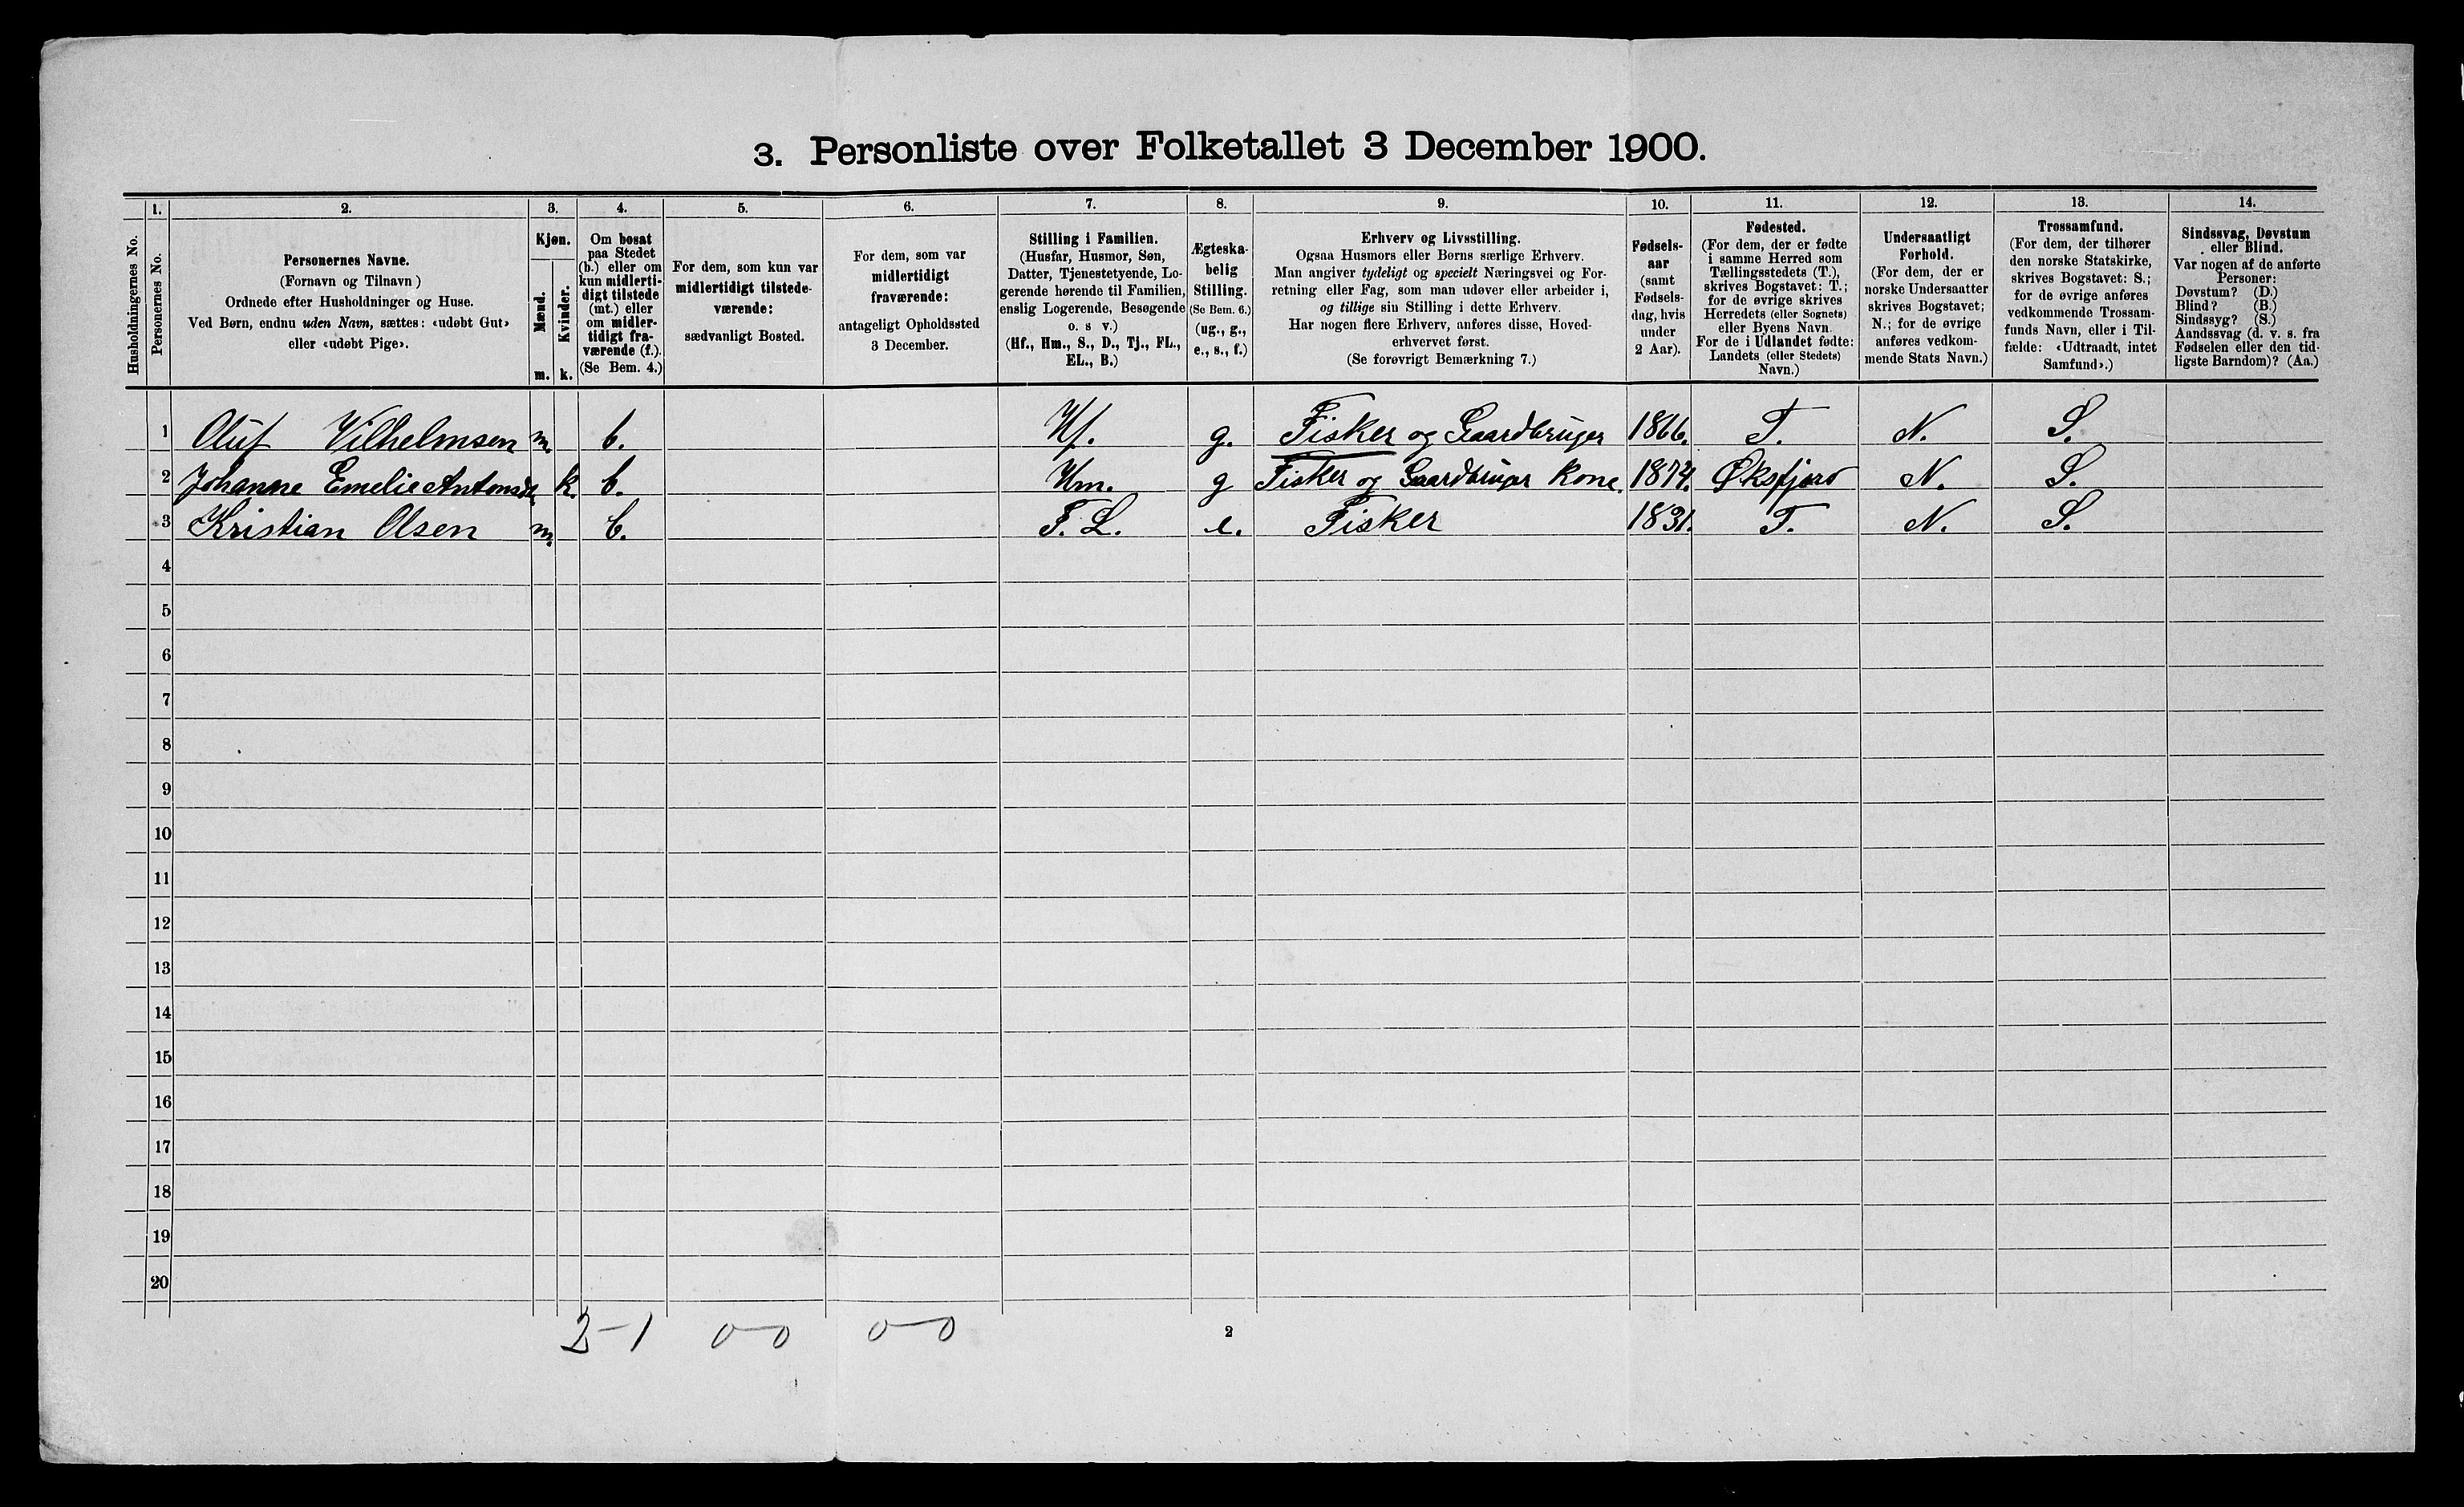 3. Personliste over Folketallet 3 December 1900.
Husholdningernes No.
1.
Personernes No.
2.
Personernes Navne.
(Fornavn og Tilnavn)
Ordnede efter Husholdninger og Huse.
Ved Børn, endnu uden Navn, sættes: «udøbt Gut»
eller «udøbt Pige».
3.
Kjøn.
Mænd.
Kvinder.
m. k.
4.
Om bosat
paa Stedet
(b.) eller om
kun midlerti-
digt tilstede
(mt.) eller
om midler-
tidigt fra-
værende (f.).
(Se Bem. 4.)
5.
For dem, som kun var
midlertidigt tilstede-
værende:
sædvanligt Bosted.
6.
For dem, som var
midlertidigt
fraværende:
antageligt Opholdssted
3 December.
7.
Stilling i Familien.
(Husfar, Husmor, Søn,
Datter, Tjenestetyende, Lo-
gerende hørende til Familien,
enslig Logerende, Besøgende
o. s v.)
(Hf., Hm., S., D., Tj., FL.,
EL., B.)
8.
Ægteska-
belig
Stilling.
(Se Bem. 6.)
(ug., g.,
e., s., f.)
9.
Erhverv og Livsstilling.
Ogsaa Husmors eller Børns særlige Erhverv.
Man angiver tydeligt og specielt Næringsvei og For-
retning eller Fag, som man udøver eller arbeider i,
og tillige sin Stilling i dette Erhverv.
Har nogen flere Erhverv, anføres disse, Hoved-
erhvervet først.
(Se forøvrigt Bemærkning 7.)
10.
Fødsels-
aar
(samt
Fødsels-
dag, hvis
under
2 Aar).
11.
Fødested.
(For dem, der er fødte
i samme Herred som
Tællingsstedets (T.),
skrives Bogstavet: T.;
for de øvrige skrives
Herredets (eller Sognets)
eller Byens Navn.
For de i Udlandet fødte:
Landets (eller Stedets)
Navn.)
12.
Undersaatligt
Forhold.
(For dem, der er
norske Undersaatter
skrives Bogstavet;
N.; for de øvrige
anføres vedkom-
mende Stats Navn.)
13.
Trossamfund.
(For dem, der tilhører
den norske Statskirke,
skrives Bogstavet: S.;
for de øvrige anføres
vedkommende Trossam-
funds Navn, eller i Til-
fælde: «Udtraadt, intet
Samfund».)
14.
Sindssvag, Døvstum
eller Blind.
Var nogen af de anførte
Personer:
Døvstum? (D.)
Blind? (B.)
Sindssyg? (S.)
Aandssvag (d. v. s. fra
Fødselen eller den tid-
ligste Barndom)? (Aa.)
1 Oluf Vilhelmsen m. b. Hf. g. Fisker og Gaardbruger 1866. T. N. S.
2 Johanne Emelie k. b. Hm. g Fisker og Gaardbruger Kone. 1874. Øksfjord N. S.
3 Kristian Olsen m. b. F. L. e. Fisker 1831. T. N. S.
4
5
6
7
8
9
10
11
12
13
14
15
16
17
18
19
20
2-1 0-0 0-0
2